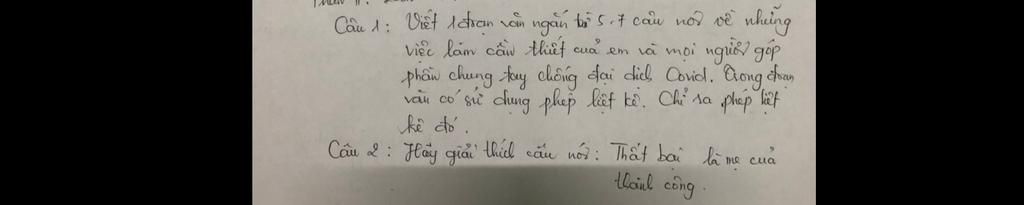 Câu 1: Viết 1 đoạn văn ngắn từ 5.7 câu nói về những
việc làm cần thiết của em và mọi người góp
phần chung tay chống đại dịch Covid. Trong đoạn
văn có sử dụng phép liệt kê. Chỉ ra phép liệt
kê đó.
Câu 2: Hãy giải thích câu nói: Thất bại là mẹ của
thành công.